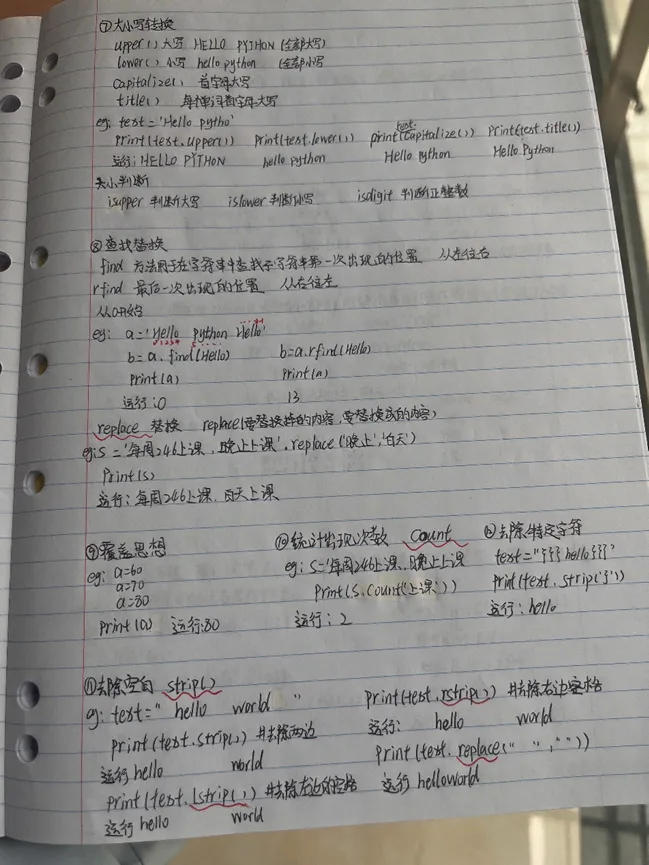 ⑦大小写转换
upper() 大写 HELLO PYTHON (全部大写)
lower() 小写 hello python (全部小写
capitalize() 首字母大写
title() 每个单词首字母大写
eg: test='Hello pytho'
print(test.upper()) print(test.lower()) print(test.capitalize()) print(test.title())
运行: HELLO PYTHON hello python Hello python Hello Python
大小判断
isupper 判断大写 islower 判断小写 isdigit 判断正整数
⑧查找替换
find 方法用于在字符串中查找子字符串第一次出现的位置 从左往右
rfind 最后一次出现的位置 从右往左
从0开始
eg: a='Hello python Hello'
01234
b=a.find(Hello) b=a.rfind(Hello)
print(a) print(a)
运行:0 13
replace 替换 replace(要替换掉的内容,要替换成的内容)
eg:s='每周246上课,晚上上课'.replace('晚上','白天')
print(s)
运行:每周246上课,白天上课
⑨覆盖思想
eg: a=60
a=70
a=80
print(a) 运行:80
⑩统计出现次数 count
eg:s='每周246上课,晚上上课
print(s.count('上课'))
运行:2
去除特定字符
text="}}}hello}}}"
print(text.strip('}'))
运行:hello
⑪去除空白 strip()
eg: text=" hello world "
print(text.strip()) #去除两边
运行 hello world
print(text.lstrip()) #去除左边的空格
运行 hello world
print(text.rstrip()) #去除右边空格
运行: hello world
print(text.replace(" ",""))
运行 helloworld